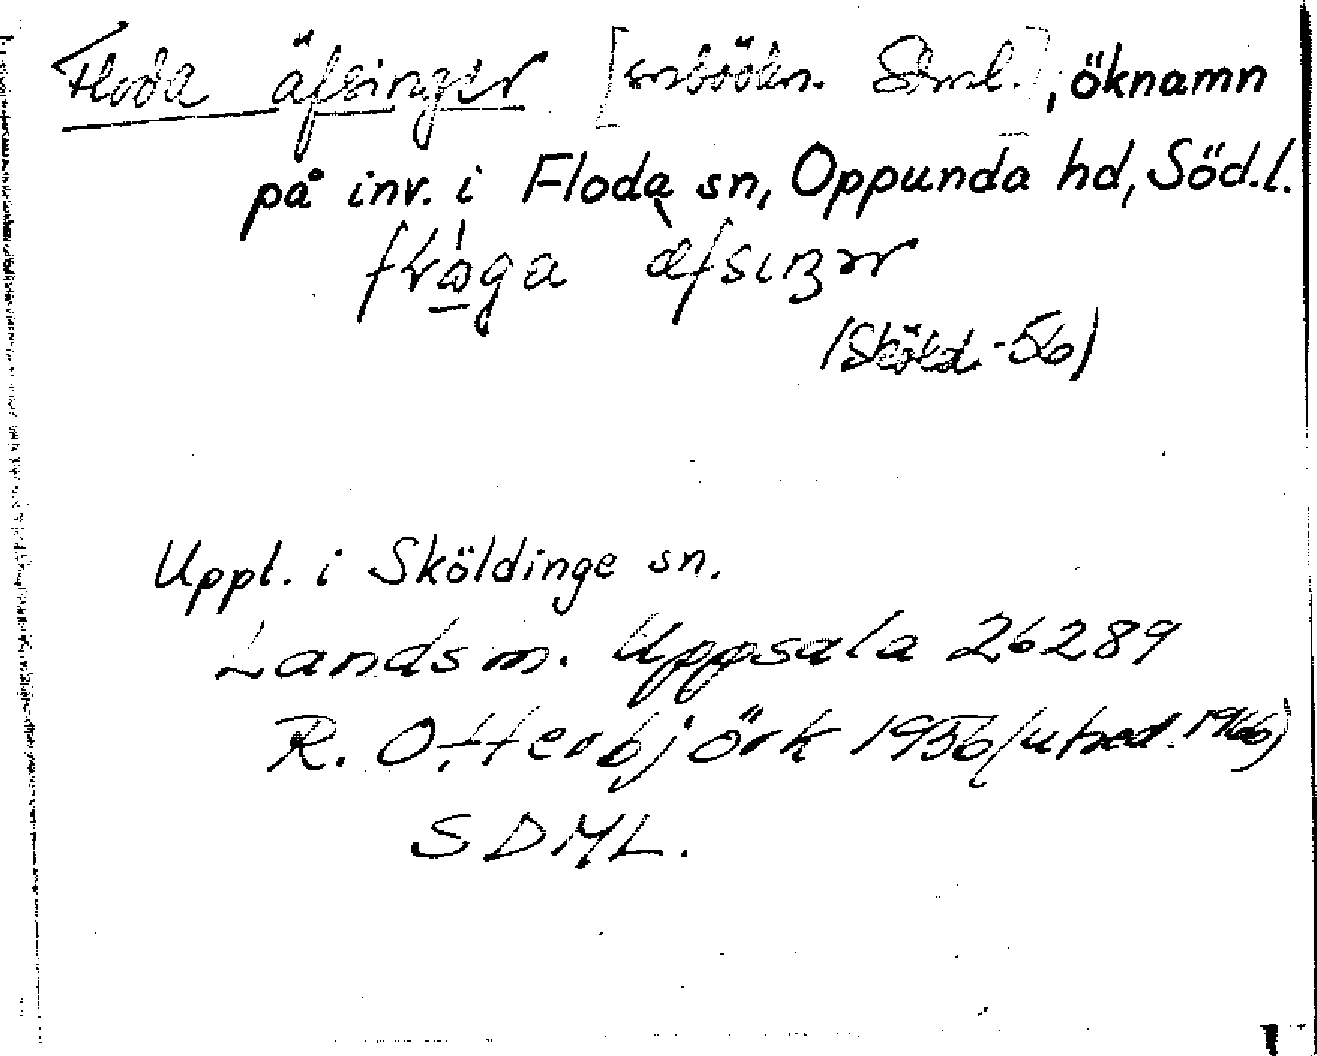 Floda äfsingar [snböökn. Sdml.], öknamn
på inv. i Floda sn, Oppunda hd, Söd.l.
(Sköld. -56)
Uppt. i Sköldinge sn.
Landsm. Uppsala 26289
R. Otterbjörk 1956 (utred. 1966)
SDML.